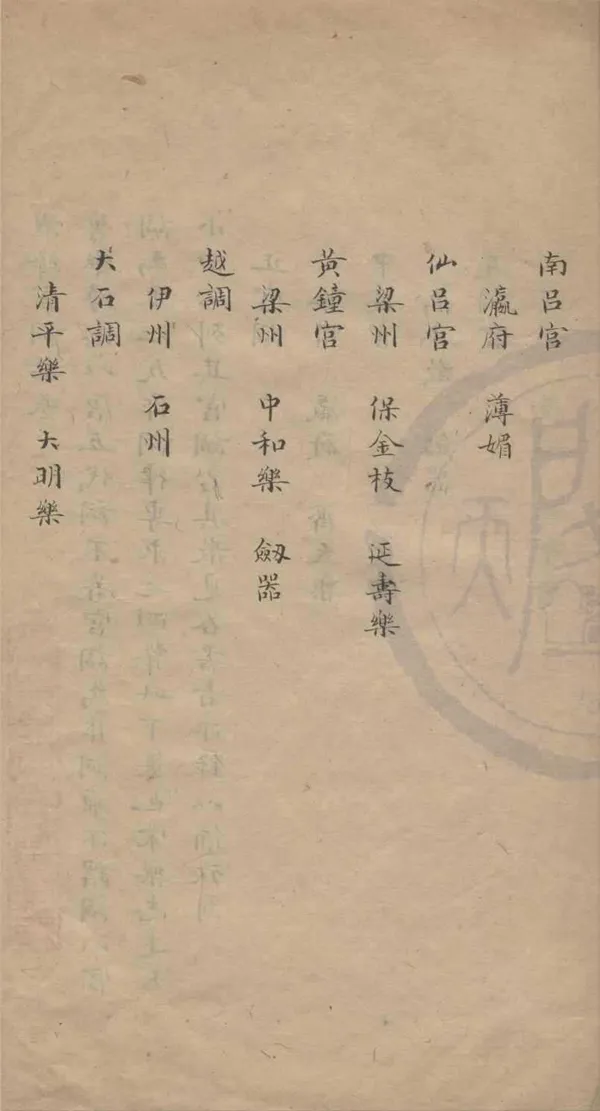 南呂宮
瀛府 薄媚
仙呂宮
梁州 保金枝 延壽樂
黃鐘宮
梁州 中和樂 劔器
越調
伊州 石州
大石調
清平樂 大明樂